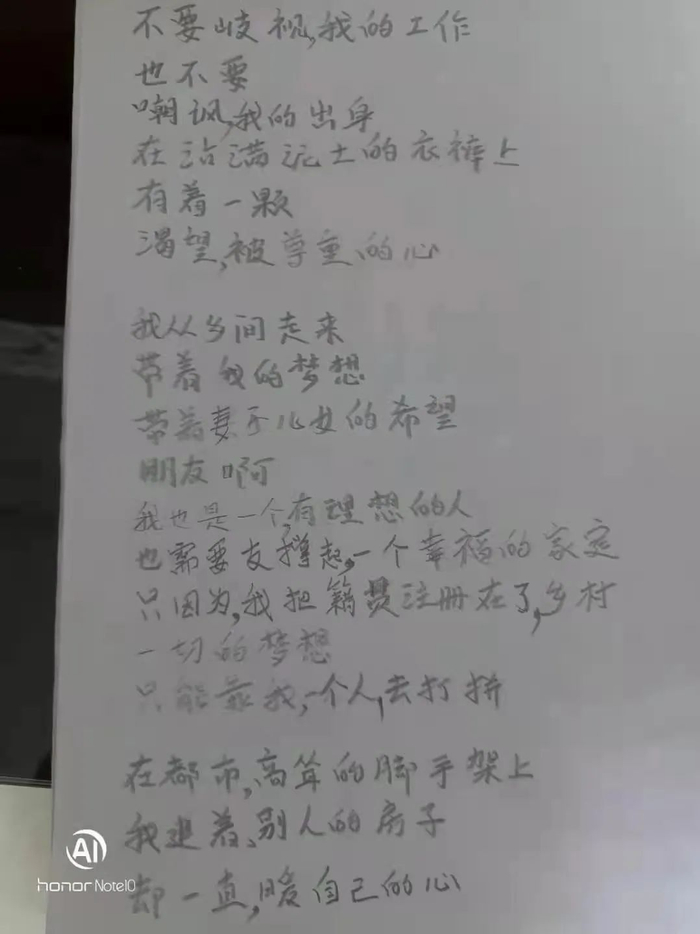 不要歧视,我的工作
也不要
嘲讽,我的出身
在沾满泥土的衣裤上
有着一颗
渴望,被尊重的心
我从乡间走来
带着我的梦想
带着妻子儿女的希望
朋友啊
我也是一个,有理想的人
也需要支撑起,一个幸福的家庭
只因为,我把籍贯注册在了,乡村
一切的梦想
只能靠我,一个人,去打拼
在都市,高耸的脚手架上
我建着,别人的房子
却一直,暖自己的心
AI
honor Note10